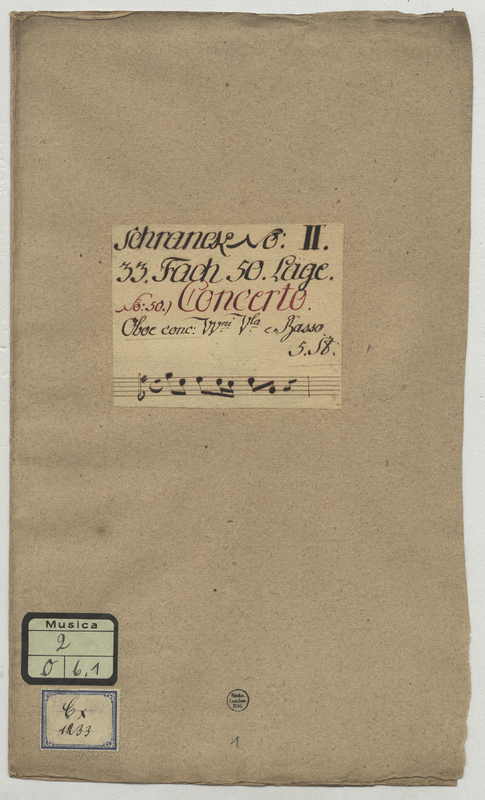 Schranck No: II.
33. Fach 50. Lage.
No: 50.) Concerto.
Oboe conc: VVni Vla e Basso.
5. St:
Musica
2
O 6,1
Cx
1233
Sächs.
Landes-
Bibl.
1